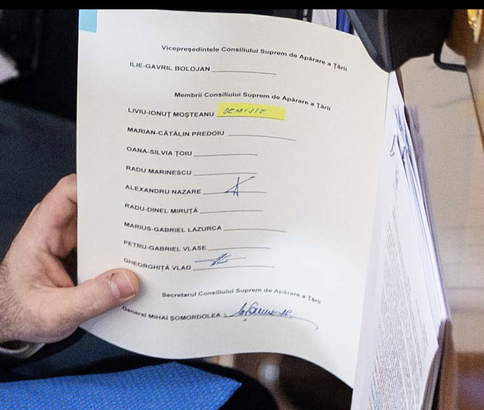 Vicepreședintele Consiliului Suprem de Apărare a Țării
ILIE-GAVRIL BOLOJAN
Membrii Consiliului Suprem de Apărare a Țării
LIVIU-IONUȚ MOȘTEANU DEMISIE
MARIAN-CĂTĂLIN PREDOIU
OANA-SILVIA ȚOIU
RADU MARINESCU
ALEXANDRU NAZARE
RADU-DINEL MIRUȚĂ
MARIUS-GABRIEL LAZURCA
PETRU-GABRIEL VLASE
GHEORGHIȚĂ VLAD
Secretarul Consiliului Suprem de Apărare a Țării
General MIHAI ȘOMORDOLEA